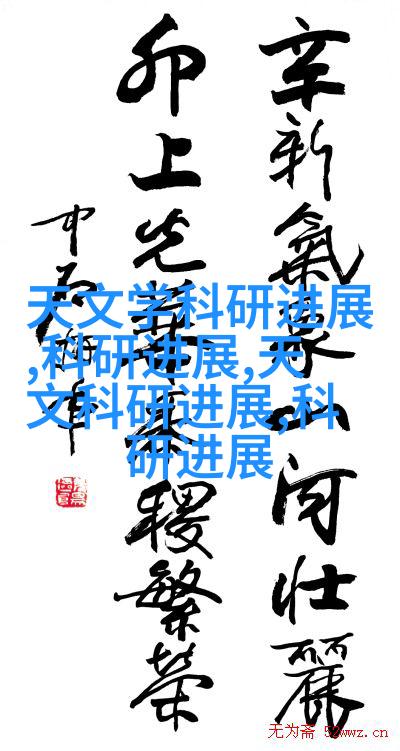 辛新氣象山河壮麗
卯上光華稷繁榮
中石
天文学科研进展
,科研进展,天
文科研进展,科
研进展
无为斋 52wwz.cn